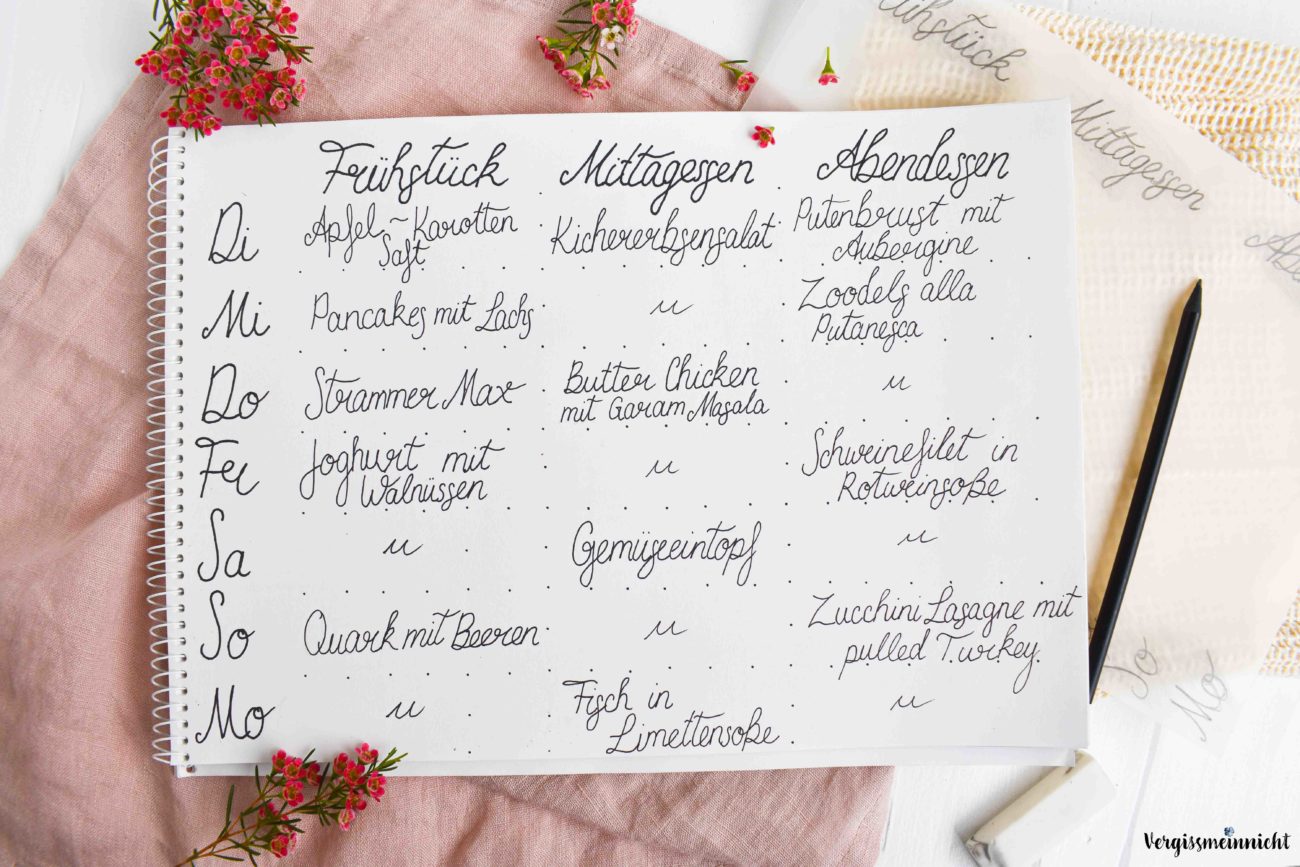 Frühstück Mittagessen Abendessen
Di Apfel~Karotten Saft Kichererbsensalat Putenbrust mit Aubergine
Mi Pancakes mit Lachs " Zoodels alla Putanesca
Do Strammer Max Butter Chicken mit Garam Masala "
Fr Joghurt mit Walnüssen " Schweinefilet in Rotweinsoße
Sa " Gemüseeintopf "
So Quark mit Beeren " Zucchini Lasagne mit pulled Turkey
Mo " Fisch in Limettensoße "
Frühstück
Mittagessen
So
Mo
Vergissmeinnicht